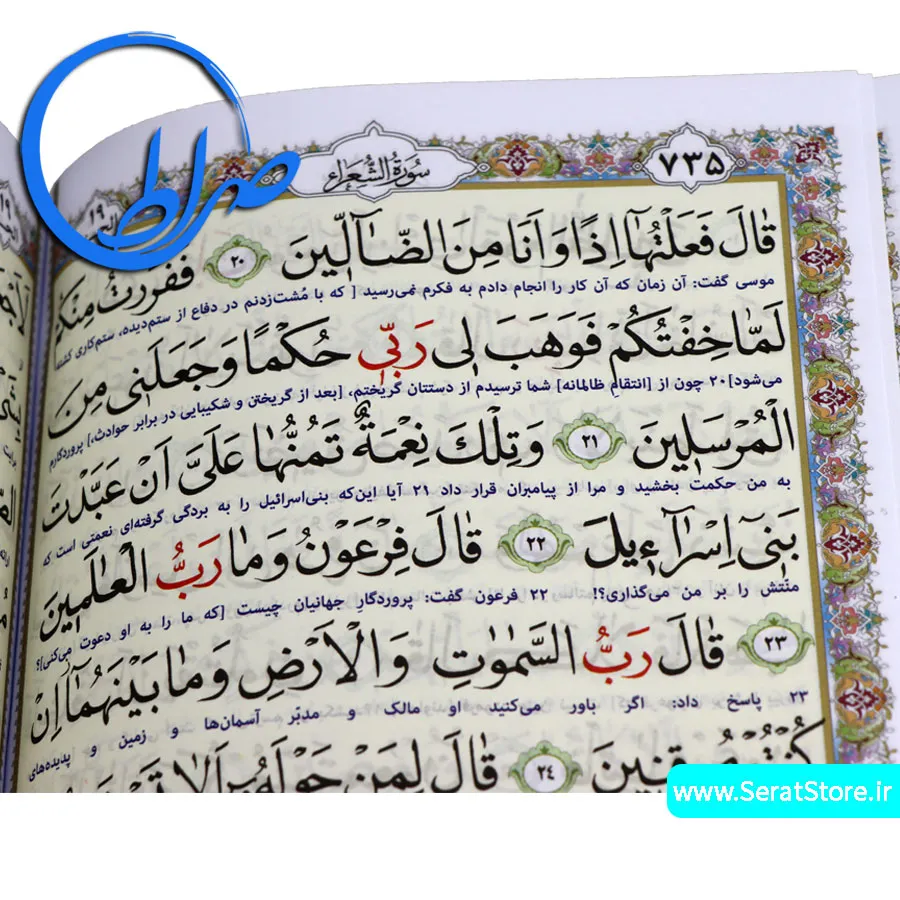 صراط
۷۳۵
سُورَةُ الشُّعَرَاء
۱۹
قٰالَ فَعَلْتُهٰٓا اِذًا وَ اَنَا مِنَ الضّٰٓالّ۪ينَ ۲۰ فَفَرَرْتُ مِنْكُمْ
موسی گفت: آن زمان که آن کار را انجام دادم به فکرم نمی‌رسید [ که با مُشت‌زدنم در دفاع از ستم‌دیده، ستم‌کاری کشته
لَمّٰا خِفْتُكُمْ فَوَهَبَ ل۪ي رَبّ۪ي حُكْمًا وَ جَعَلَن۪ي مِنَ
می‌شود]۲۰ چون از [انتقام ظالمانه] شما ترسیدم از دستتان گریختم، [بعد از گریختن و شکیبایی در برابر حوادث،] پروردگارم
الْمُرْسَل۪ينَ ۲۱ وَ تِلْكَ نِعْمَةٌ تَمُنُّهٰا عَلَيَّ اَنْ عَبَّدْتَ
به من حکمت بخشید و مرا از پیامبران قرار داد ۲۱ آیا این‌که بنی‌اسرائیل را به بردگی گرفته‌ای نعمتی است که
بَن۪ٓي اِسْرٰٓاء۪يلَ ۲۲ قٰالَ فِرْعَوْنُ وَ مٰا رَبُّ الْعٰالَم۪ينَ
منّتش را بر من می‌گذاری؟! ۲۲ فرعون گفت: پروردگارِ جهانیان چیست [که ما را به او دعوت می‌کنی]؟
۲۳ قٰالَ رَبُّ السَّمٰوٰتِ وَ الْاَرْضِ وَ مٰا بَيْنَهُمٰٓا اِنْ
۲۳ پاسخ داد: اگر باور می‌کنید او مالک و مدبّر آسمان‌ها و زمین و پدیده‌های
كُنْتُمْ مُوقِن۪ينَ ۲۴ قٰالَ لِمَنْ حَوْلَهُٓ اَلٰا
www.SeratStore.ir